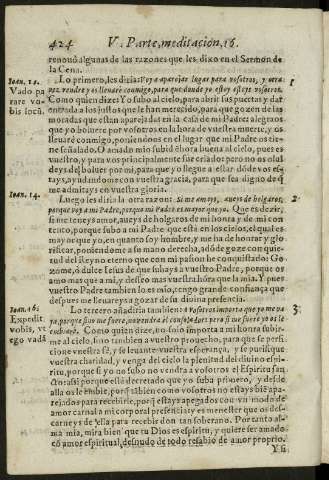 424 V. Parte, meditacion, 16.
renouò algunas de las razones que les dixo en el Sermon de
la Cena.
Lo primero, les diria: Voy a aparejar lugar para vosotros, y otra
vez vendrè y os lleuarè conmigo, para que donde yo estoy esteys vosotros.
Como quien dize: Yo subo al cielo, para abrir sus puertas y dar
entrada a los justos que le han merecido, para que gozen de las
moradas que estan aparejadas en la casa de mi Padre: alegraos
que yo boluere por vosotros en la hora de vuestra muerte, y os
lleuarè conmigo, poniendoos en el lugar que mi Padre os tie-
ne señalado. O amado mio subid ahora buena al cielo, pues es
vuestro, y para vos principalmente fue criado: pero no os olui
deys de boluer por mi, para que yo llegue a estar dòde vos es-
tays, ayudandome con vuestra gracia, para que sea digno de q̃
me admitays en vuestra gloria.
Luego les diria la otra razon: Si me amays, aueys de holgaros,
porque voy a mi Padre, porque mi Padre es mayor que yo. Que es dezir,
si me teneys amor, aueys de holgaros de mi honra y de mi con
tento, porque subo a mi Padre que està en los cielos, el qual es
mayor que yo, en quanto soy hombre, y me ha de honrar y glo
rificar, poniendome a su mano derecha, adòde goze con quie
tud del Reyno eterno que con mi passion he conquistado: Go
zome, ò dulce Iesus de que subays a vuestro Padre, porque os
amo mas que a mi, y deseo mas vuestra hõra que la mia. Y pues
vuestro Padre tambien lo es mio, tengo grande confiança que
despues me lleuareys a gozar de su diuina presencia.
Lo tercero añadiria tambien: A vosotros importa que yo me va
ya, porque sino me fuere, no vendra a el consolador: pero si me fuere yo os le
embiarè. Como quien dize: no solo importa a mi honra subir-
me al cielo, sino tambien a vuestro prouecho, para que se perfi
cione vuestra fè, y se leuante vuestra esperança, y se purifique
vuestra charidad, y venga del cielo la plenitud del diuino espi-
ritu, porque si yo no subo no vendra a vosotros el Espiritu san-
cto: assi porque està decretado que yo suba primero, y desde
alla os le embie, porq̃ tãbien como vosotros no estays biẽ apa-
rejados para recebirle, porq̃ estays apegados con vn modo de
amor carnal a mi corporal presencia: y es menester que os des-
carneys de ella para recebir don tan soberano. Por tanto al-
ma mia, mira bien que tu Dios es espiritu, y quiere ser amado
cõ amor espiritual, desnudo de todo resabio de amor proprio.
Y si
Ioan. 14.
Vado pa
rare vo-
bis locũ.
Ioan. 14.
Ioan. 16.
Expedit
vobis, vt
ego vadã
1
2
3